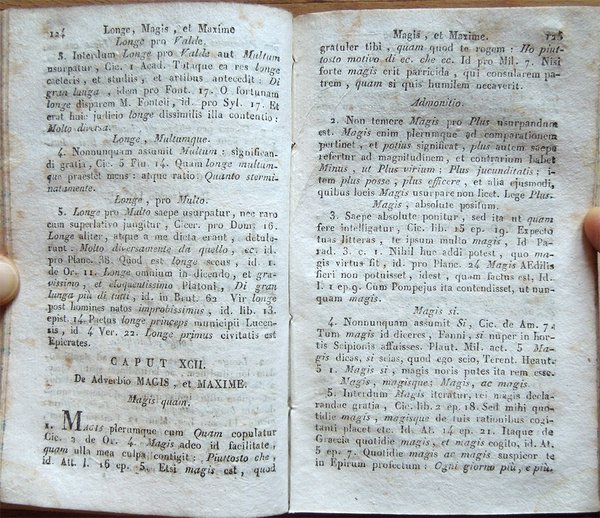 124 Longe, Magis, et Maxime
Longe pro Valde.
3. Interdum Longe pro Valde aut Multum
usurpatur, Cic. 1 Acad. Titque ea res longe
caeteris, et studiis, et artibus antecedit: Di
gran lunga, idem pro Font. 17. O fortunam
longe disparem M. Fonteii, id. pro Syl. 17. Et
erat huic judicio longe dissimilis illa contentio:
Molto diversa.
Longe, Multumque.
4. Nonnunquam assumit Multum: significan-
di gratia, Cic. 5 Fin. 14. Quam longe multum-
que praestet mens: atque ratio: Quanto stermi-
natamente.
Longe, pro Multo.
5. Longe pro Multo saepe usurpatur, nec raro
cum superlativo jungitur, Cicer. pro Dom. 16.
Longe aliter, atque a me dicta erant, detule-
runt. Molto diversamente da quello, ec. id.
pro Planc. 38. Quod est longe secus, id. 1.
de Or. 11. Longe omnium in dicendo, et gra-
vissimo, et eloquentissimo Platoni, Di gran
lunga più di tutti, id. in Brut. 62 Vir longe
post homines natos improbissimus, id. lib. 13.
epist. 14 Pactus longe princeps municipii Lucen-
sis, id 4 Ver. 22. Longe primus civitatis est
Epicrates.
CAPUT XCII.
De Adverbio MAGIS, et MAXIME.
Magis quam.
1. MAGIS plerumque cum Quam copulatur
Cic. 2 de Or. 4. Magis adeo id facilitate,
quam ulla mea culpa contigit: Piuttosto che,
id. Att. l. 16 ep. 5. Etsi magis est, quod
Magis, et Maxime. 125
gratuler tibi, quam quod te rogem: Ho piut-
tosto motivo di ec. che ec. Id pro Mil. 7. Nisi
forte magis erit parricida, qui consularem pa-
trem, quam si quis humilem necaverit.
Admonitio.
2. Non temere Magis pro Plus usurpandum
est. Magis enim plerumque ad comparationem
pertinet, et potius significat, plus autem saepe
refertur ad magnitudinem, et contrarium habet
Minus, ut Plus virium; Plus jucunditatis; i-
tem plus posse, plus efficere, et alia ejusmodi,
quibus locis Magis usurpare non licet. Lege Plus.
Magis, absolute positum.
3. Saepe absolute ponitur, sed ita ut quam
fere intelligatur, Cic. lib. 15 ep. 19. Expecto
tuas litteras, te ipsum multo magis. Id Pa-
rad. 3. c. 1. Nihil huc addi potest, quo ma-
gis virtus fit, id. pro Planc. 24 Magis AEdilis
fieri non potuisset, idest, quam factus est, Id.
l. 1 ep. 9. Cum Pompejus ita contendisset, ut nun-
quam magis.
Magis si.
4. Nonnunquam assumit Si, Cic. de Am. 7.
Tum magis id diceres, Fanni, si nuper in hor-
tis Scipionis affuisses. Plaut. Mil. act. 5 Ma-
gis dicas, si scias, quod ego scio, Terent. Heaut.
5 1. Magis si, magis noris putes ita rem esse.
Magis, magisque; Magis, ac magis.
5. Interdum Magis iteratur, rei magis decla-
randae gratia, Cic. lib. 2 ep. 18. Sed mihi quo-
tidie magis, magisque de tuis rationibus cogi-
tanti placet etc. Id. At. 14 ep. 21. Itaque de
Graecia quotidie magis, et magis cogito, id. At.
5 ep. 7. Quotidie magis ac magis suspicor te
in Epirum profectum: Ogni giorno più, e più.